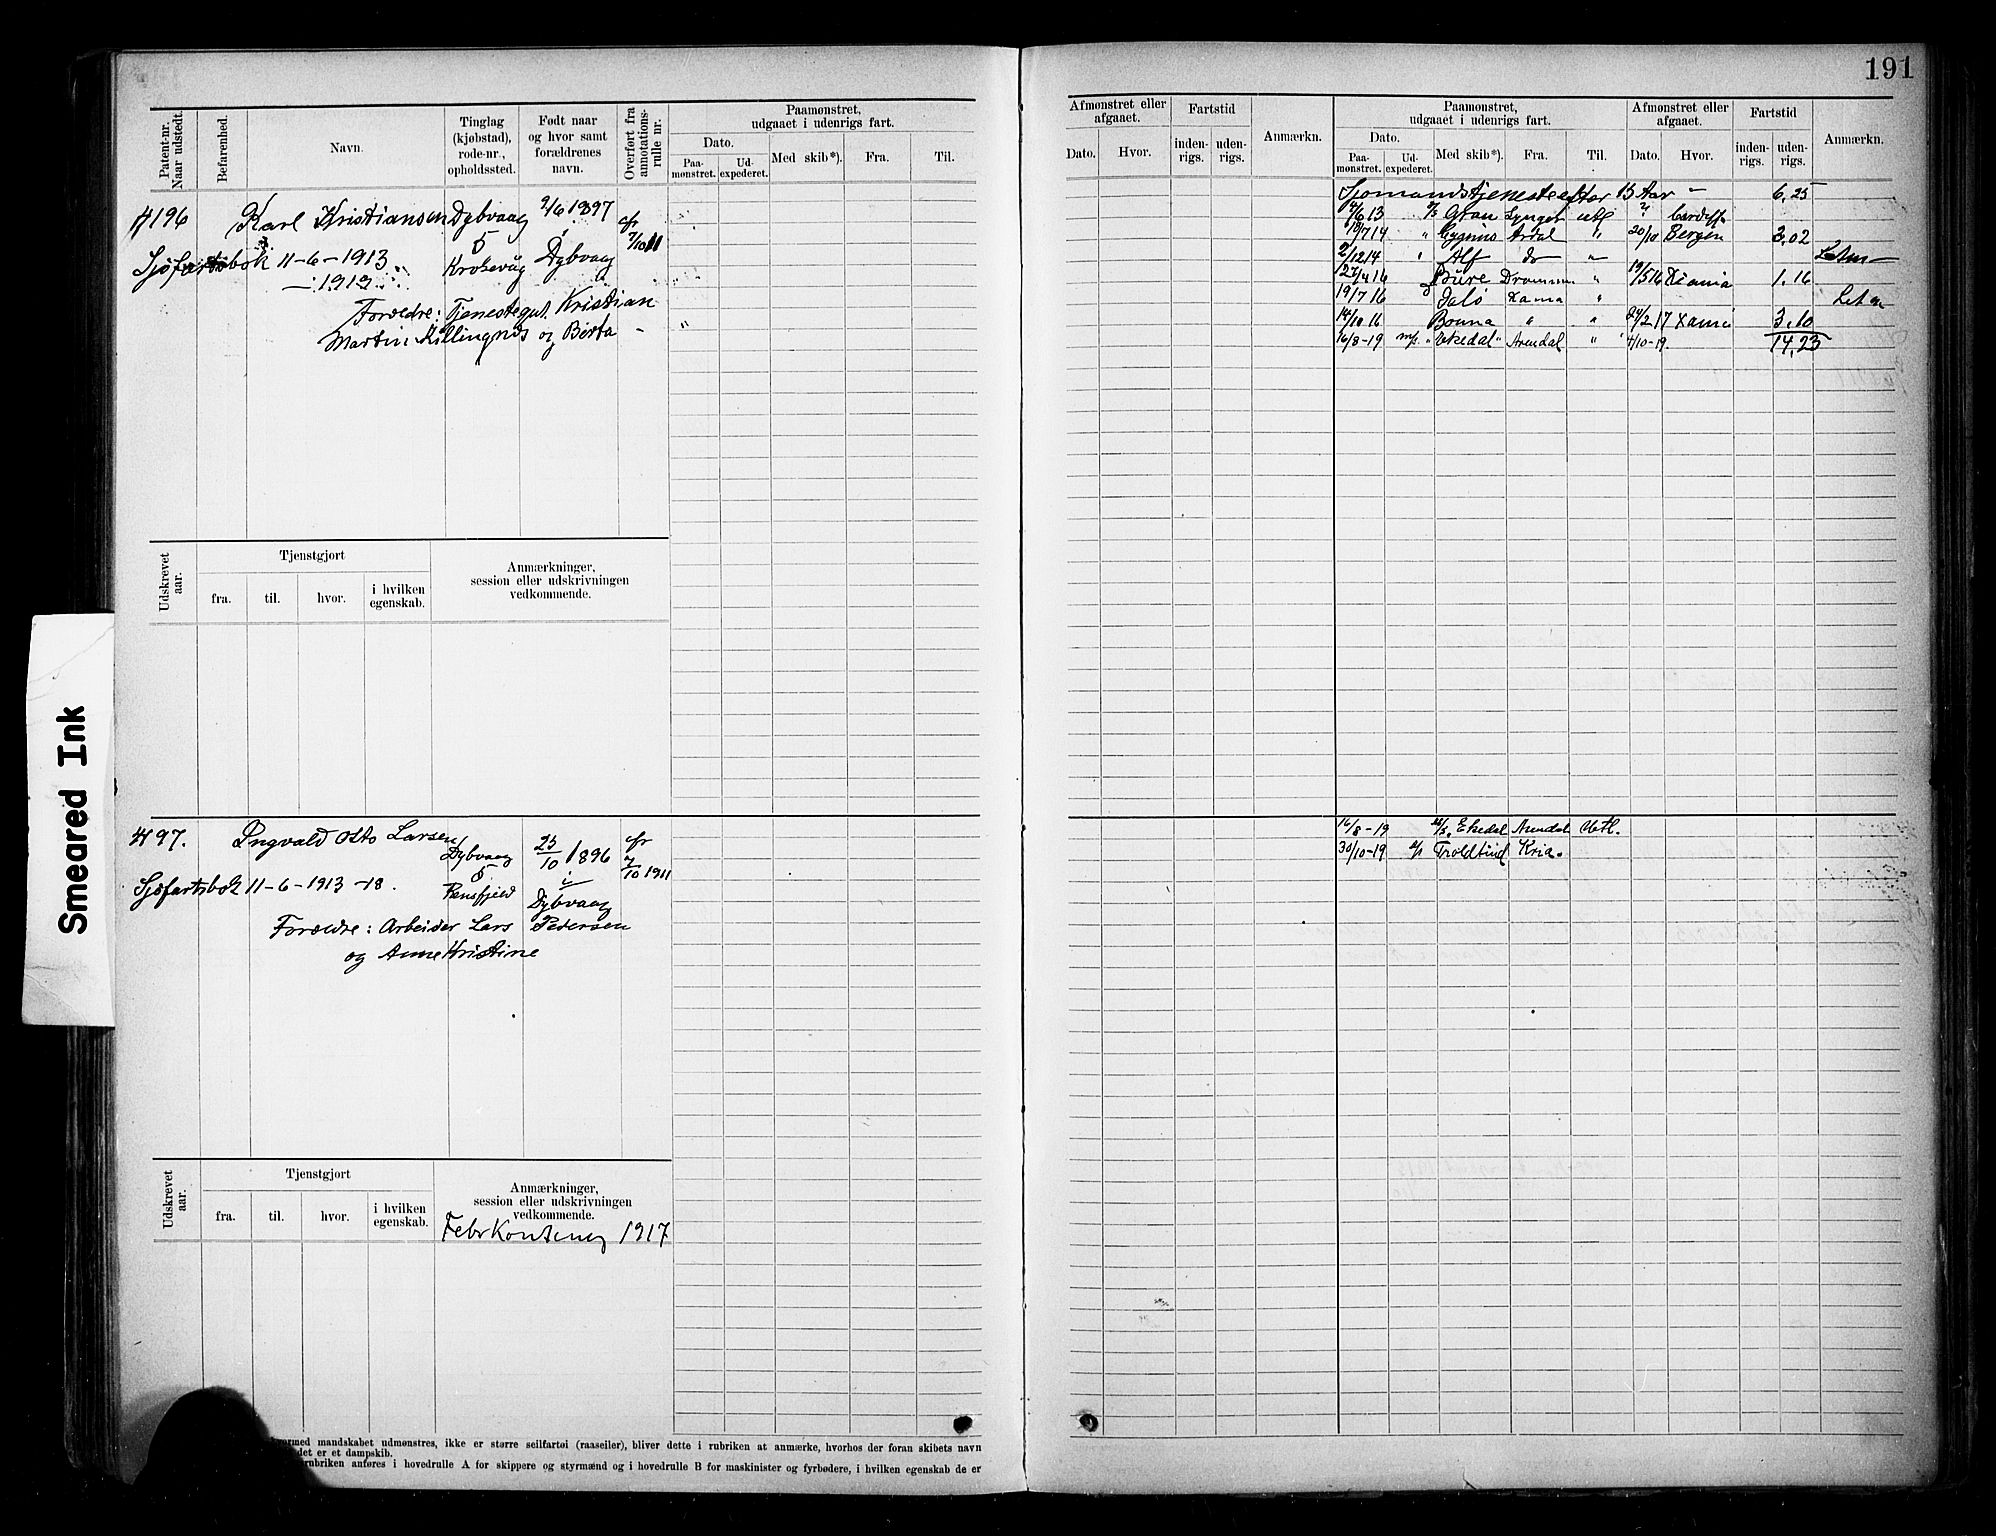 191
Patent-nr. Naar udstedt.
Befarenhed.
Navn.
Tinglag (kjøbstad), rode-nr., opholdssted.
Født naar og hvor samt forældrenes navn.
Overført fra annotations-rulle nr.
Paamønstret, udgaaet i udenrigs fart.
Dato.
Paa-mønstret.
Ud-expederet.
Med skib*).
Fra.
Til.
4196 Karl Kristiansen Dybvaag 9/6 1897 cfr
5 7/10 11
Sjøfartsbok 11-6-1913 Krokevåg Dybvaag
-1919
Forældre: Tjenestegut Kristian
Martin Killingnæs og Berta
Udskrevet aar.
Tjenstgjort
fra. til. hvor. i hvilken egenskab.
Anmærkninger, session eller udskrivningen vedkommende.
4197. Ingvald Otto Larsen Dybvaag 25/10 1896 cfr
5 i 7/10 1911
Sjøfartsbok 11-6-1913 -18. Dybvaag
Forældre: Arbeider Lars Pedersen
og Anne Kristine
Udskrevet aar.
Tjenstgjort
fra. til. hvor. i hvilken egenskab.
Anmærkninger, session eller udskrivningen vedkommende.
1917
mandskabet udmønstres, ikke er større seilfartøi (raaseiler), bliver dette i rubriken at anmærke, hvorhos der foran skibets navn
det er et dampskib.
rubriken anføres i hovedrulle A for skippere og styrmænd og i hovedrulle B for maskinister og fyrbødere, i hvilken egenskab de er
Afmønstret eller afgaaet.
Dato. Hvor.
Fartstid
inden-rigs. uden-rigs.
Anmærkn.
Paamønstret, udgaaet i udenrigs fart.
Dato.
Paa-mønstret. Ud-expederet.
Med skib*). Fra. Til.
Afmønstret eller afgaaet.
Dato. Hvor.
Fartstid
inden-rigs. uden-rigs.
Anmærkn.
Sjømandstjeneste efter 15 Aar - 6,25
Gran Lyngør utl Cardiff
Cygnus Ardal " 20/10 Bergen 3,02
2/12 14 " Alf do
27/4 16 Bure Drammen " 19/5 16 Xania 1,16
19/7 16 Xania "
14/10 16 Bonna " " 24/2 17 Xania 3,10
16/8-19 m/s. "Ekedal" Arendal " 4/10-19. 14,23
16/8-19 m/s. Ekedal Arendal Utl.
30/10-19 Troldtind Kria.
Smeared Ink